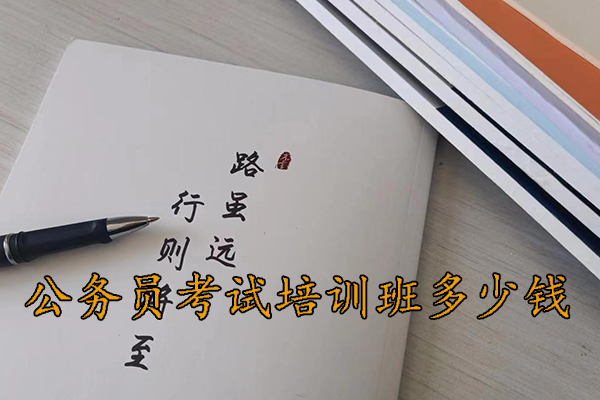 路虽远
行则将至
公务员考试培训班多少钱